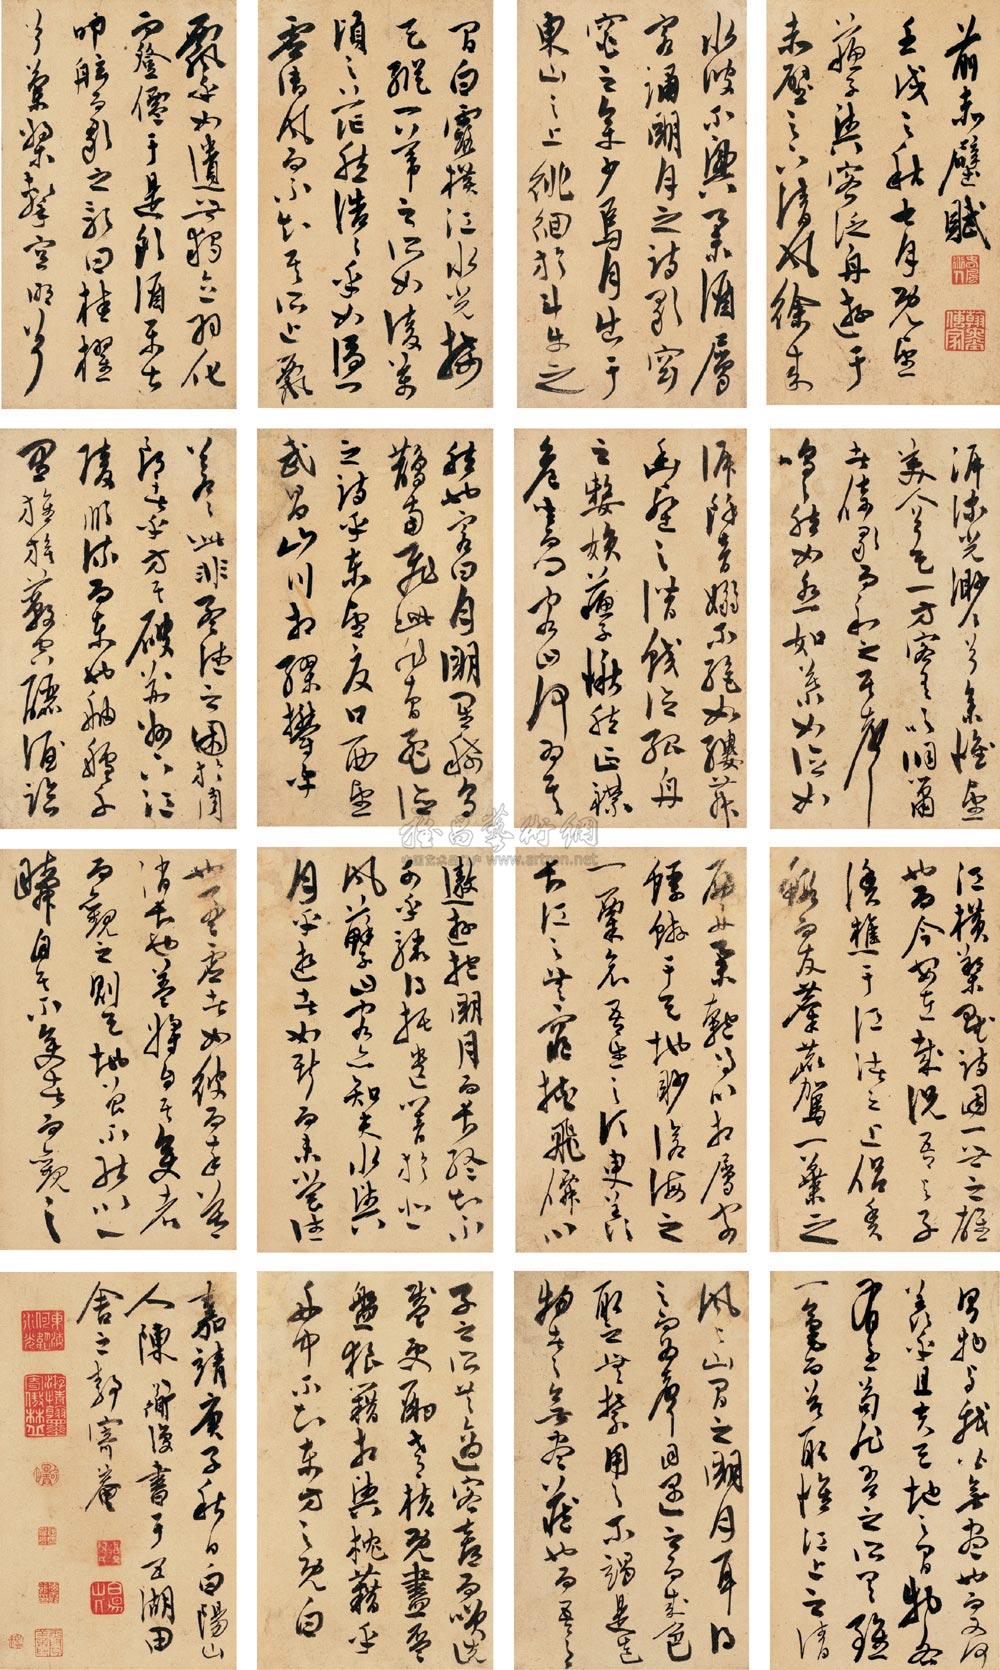 前赤壁賦
壬戌之秋七月既望
蘇子與客泛舟遊于
赤壁之下清風徐來
水波不興舉酒屬
客誦明月之詩歌窈
窕之章少焉月出于
東山之上徘徊於斗牛之
間白露橫江水光接
天縱一葦之所如凌萬
頃之茫然浩浩乎如憑
虛御風而不知其所止飄
飄乎如遺世獨立羽化
而登僊于是飲酒樂甚
叩舷而歌之歌曰桂櫂
兮蘭槳擊空明兮
泝流光渺渺兮余懷望
美人兮天一方客有吹洞簫
者倚歌而和之其聲
嗚嗚然如怨如慕如泣如
訴餘音嫋嫋不絕如縷舞
幽壑之潛蛟泣孤舟
之嫠婦蘇子愀然正襟
危坐而問客曰何為其
然也客曰月明星稀烏
鵲南飛此非曹孟德
之詩乎東望夏口西望
武昌山川相繆鬱乎
蒼蒼此非孟德之困於周
郎者乎方其破荊州下江
陵順流而東也舳艫千
里旌旗蔽空釃酒臨
江橫槊賦詩固一世之雄
也而今安在哉況吾與子
漁樵于江渚之上侶魚
鰕而友麋鹿駕一葉之
扁舟舉匏尊以相屬寄
蜉蝣于天地眇滄海之
一粟哀吾生之須臾羨
長江之無窮挾飛僊以
遨遊抱明月而長終知不
可乎驟得託遺響於悲
風蘇子曰客亦知夫水與
月乎逝者如斯而未嘗往
也盈虛者如彼而卒莫
消長也蓋將自其變者
而觀之則天地曾不能以一
瞬自其不變者而觀之
則物與我皆無盡也而又何
羨乎且夫天地之間物各
有主苟非吾之所有雖
一毫而莫取惟江上之清
風與山間之明月耳得
之而為聲目遇之而成色
取之無禁用之不竭是造
物者之無盡藏也而吾與
子之所共適客喜而笑洗
盞更酌肴核既盡杯
盤狼藉相與枕藉乎
舟中不知東方之既白
嘉靖庚子秋日白陽山
人陳淳復書于五湖田
舍之靜寄菴
雅昌藝術網
www.artron.net